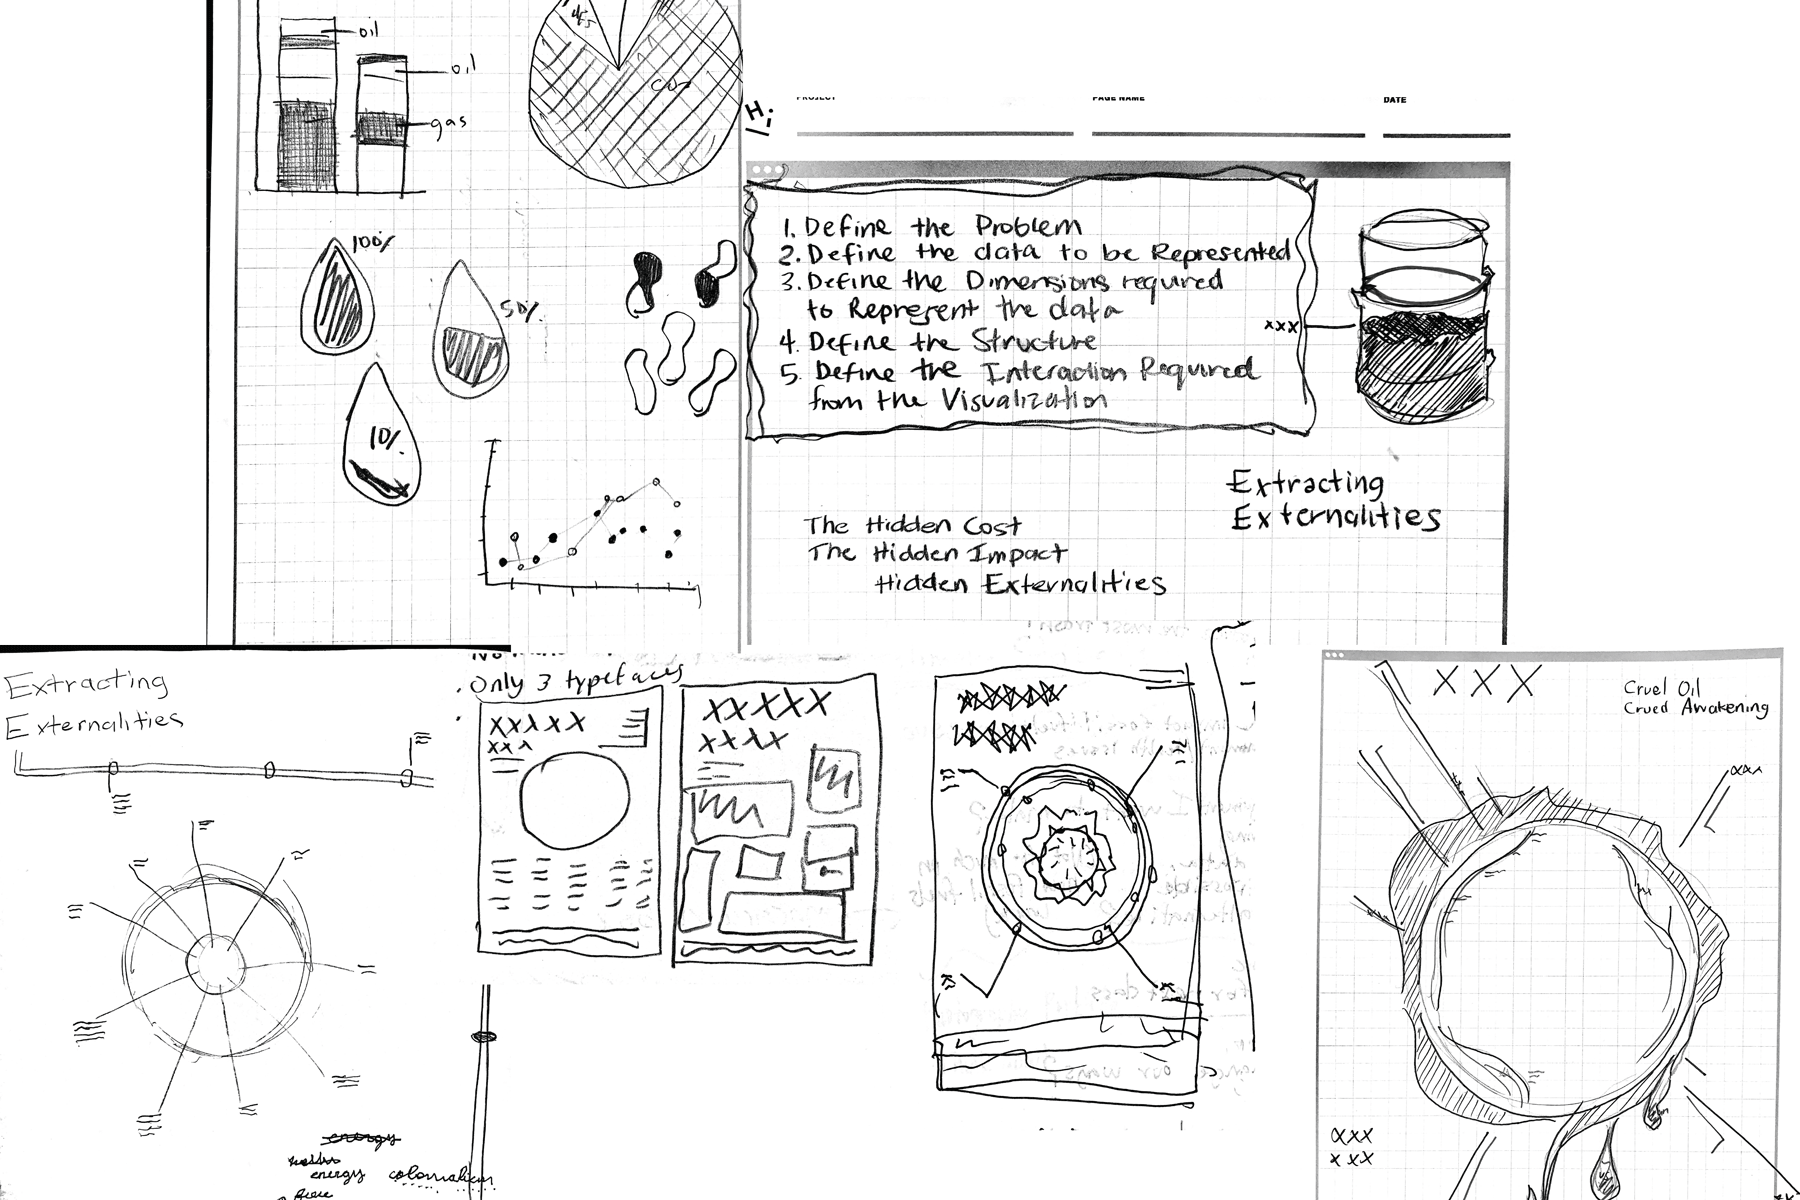 oil
oil
gas
100%
50%
10%
Hi
PROJECT
PAGE NAME
DATE
1. Define the Problem
2. Define the data to be Represented
3. Define the Dimensions required
to Represent the data
4. Define the Structure
5. Define the Interaction Required
from the Visualization
xxx
Extracting
Externalities
The Hidden Cost
The Hidden Impact
Hidden Externalities
Extracting
Externalities
. Only 3 typefaces
XXXXX
XXX
XXXXX
XXXX
XXX
Cruel Oil
Crued Awakening
xxx
xxx
xxx
energy
energy colonialism